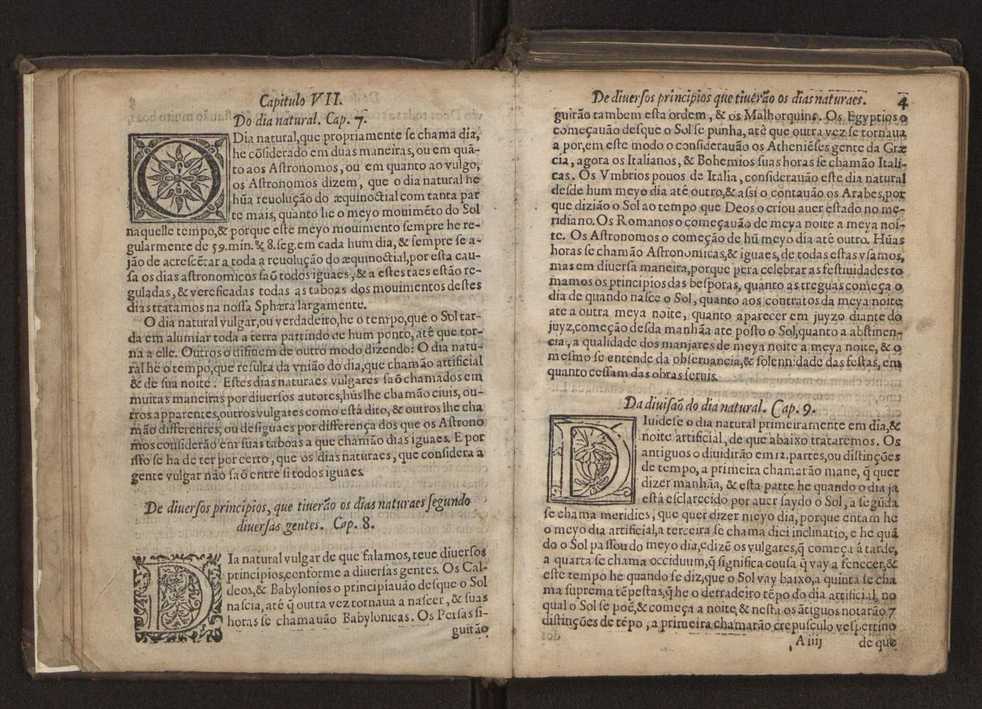 Capitulo VII.
Do dia natural. Cap. 7.
O Dia natural, que propriamente se chama dia,
he cõsiderado em duas maneiras, ou em quã-
to aos Astronomos, ou em quanto ao vulgo,
os Astronomos dizem, que o dia natural he
hũa reuolução do æquinoctial com tanta par
te mais, quanto he o meyo mouimẽto do Sol
naquelle tempo, & porque este meyo mouimento sempre he re-
gularmente de 59. min. & 8. seg. em cada hum dia, & sempre se a-
jão de acrescẽtar a toda a reuolução do æquinoctial, por esta cau-
sa os dias astronomicos saõ todos iguaes, & a estes taes estão re-
guladas, & vereficadas todas as taboas dos mouimentos destes
dias tratamos na nossa Sphæra largamente.
O dia natural vulgar, ou verdadeiro, he o tempo, que o Sol tar-
da em alumiar toda a terra partindo de hum ponto, até que tor-
na a elle. Outros o difinem de outro modo dizendo: O dia natu-
ral he o tempo, que resulta da vnião do dia, que chamão artificial
& de sua noite. Estes dias naturaes vulgares saõ chamados em
muitas maneiras por diuersos autores, hũs lhe chamão ciuis, ou-
tros apparentes, outros vulgares como está dito, & outros lhe cha
mão differentes, ou desiguaes por differença dos que os Astrono
mos considerão em suas taboas a que chamão dias iguaes. E por
isso se ha de ter por certo, que os dias naturaes, que considera a
gente vulgar não saõ entre si todos iguaes.
De diuersos principios, que tiuerão os dias naturaes segundo
diuersas gentes. Cap. 8.
DIa natural vulgar de que falamos, teue diuersos
principios, conforme a diuersas gentes. Os Cal-
deos, & Babylonios o principiauão desque o Sol
nascia, até q̃ outra vez tornaua a nascer, & suas
horas se chamauão Babylonicas. Os Persas si-
guirão
De diuersos principios que tiuerão os dias naturaes. 4
guirão tambem esta ordem, & os Malhorquins. Os Egyptios o
começauão desque o Sol se punha, atê que outra vez se tornaua
a por, em este modo o consideraurão os Atheniẽses gente da Græ
cia, agora os Italianos, & Bohemios suas horas se chamão Itali-
cas. Os Vmbrios pouos de Italia, considerauão este dia natural
desde hum meyo dia até outro, & assi o contauão os Arabes, por
que dizião o Sol ao tempo que Deos o criou auer estado no me-
ridiano. Os Romanos o começauão de meya noite a meya noi-
te. Os Astronomos o começão de hũ meyo dia até outro. Hũas
horas se chamão Astronomicas, & iguaes, de todas estas vsamos,
mas em diuersa maneira, porque pera celebrar as festiuidades to
mamos os principios das besporas, quanto as treguas começa o
dia de quando nasce o Sol, quanto aos contratos da meya noite
ate a outra meya noite, quanto aparecer em juyzo diante do
juyz, começão desda manhãa atè posto o Sol, quanto a abstinen-
cia, a qualidade dos manjares de meya noite a meya noite, & o
mesmo se entende da obseruancia, & solennidade das festas, em
quanto cessam das obras seruis.
Da diuisaõ do dia natural. Cap. 9.
DIuidese o dia natural primeiramente em dia, &
noite artificial, de que abaixo trataremos. Os
antiguos o diuidirão em 12. partes, ou distinções
de tempo, a primeira chamarão mane, q̃ quer
dizer manhãa, & esta parte he quando o dia ja
está esclarecido por auer saydo o Sol, a segũda
se chama meridies, que quer dizer meyo dia, porque entam he
o meyo dia artificial, a terceira se chama diei inclinatio, e he quã
do o Sol passou do meyo dia, e dizẽ os vulgares, q̃ começa á tarde,
a quarta se chama occiduum, q̃ significa cousa q̃ vay a fenecer, &
este tempo he quando se diz, que o Sol vay baixo, a quinta se cha
ma suprema tẽpestas, q̃ he o derradeiro tẽpo do dia artificial, no
qual o Sol se poẽ, & começa a noite, & nesta os ãtiguos notarão 7
distinções de tẽpo, a primeira chamarão crepusculo vespertino
A iiij de que